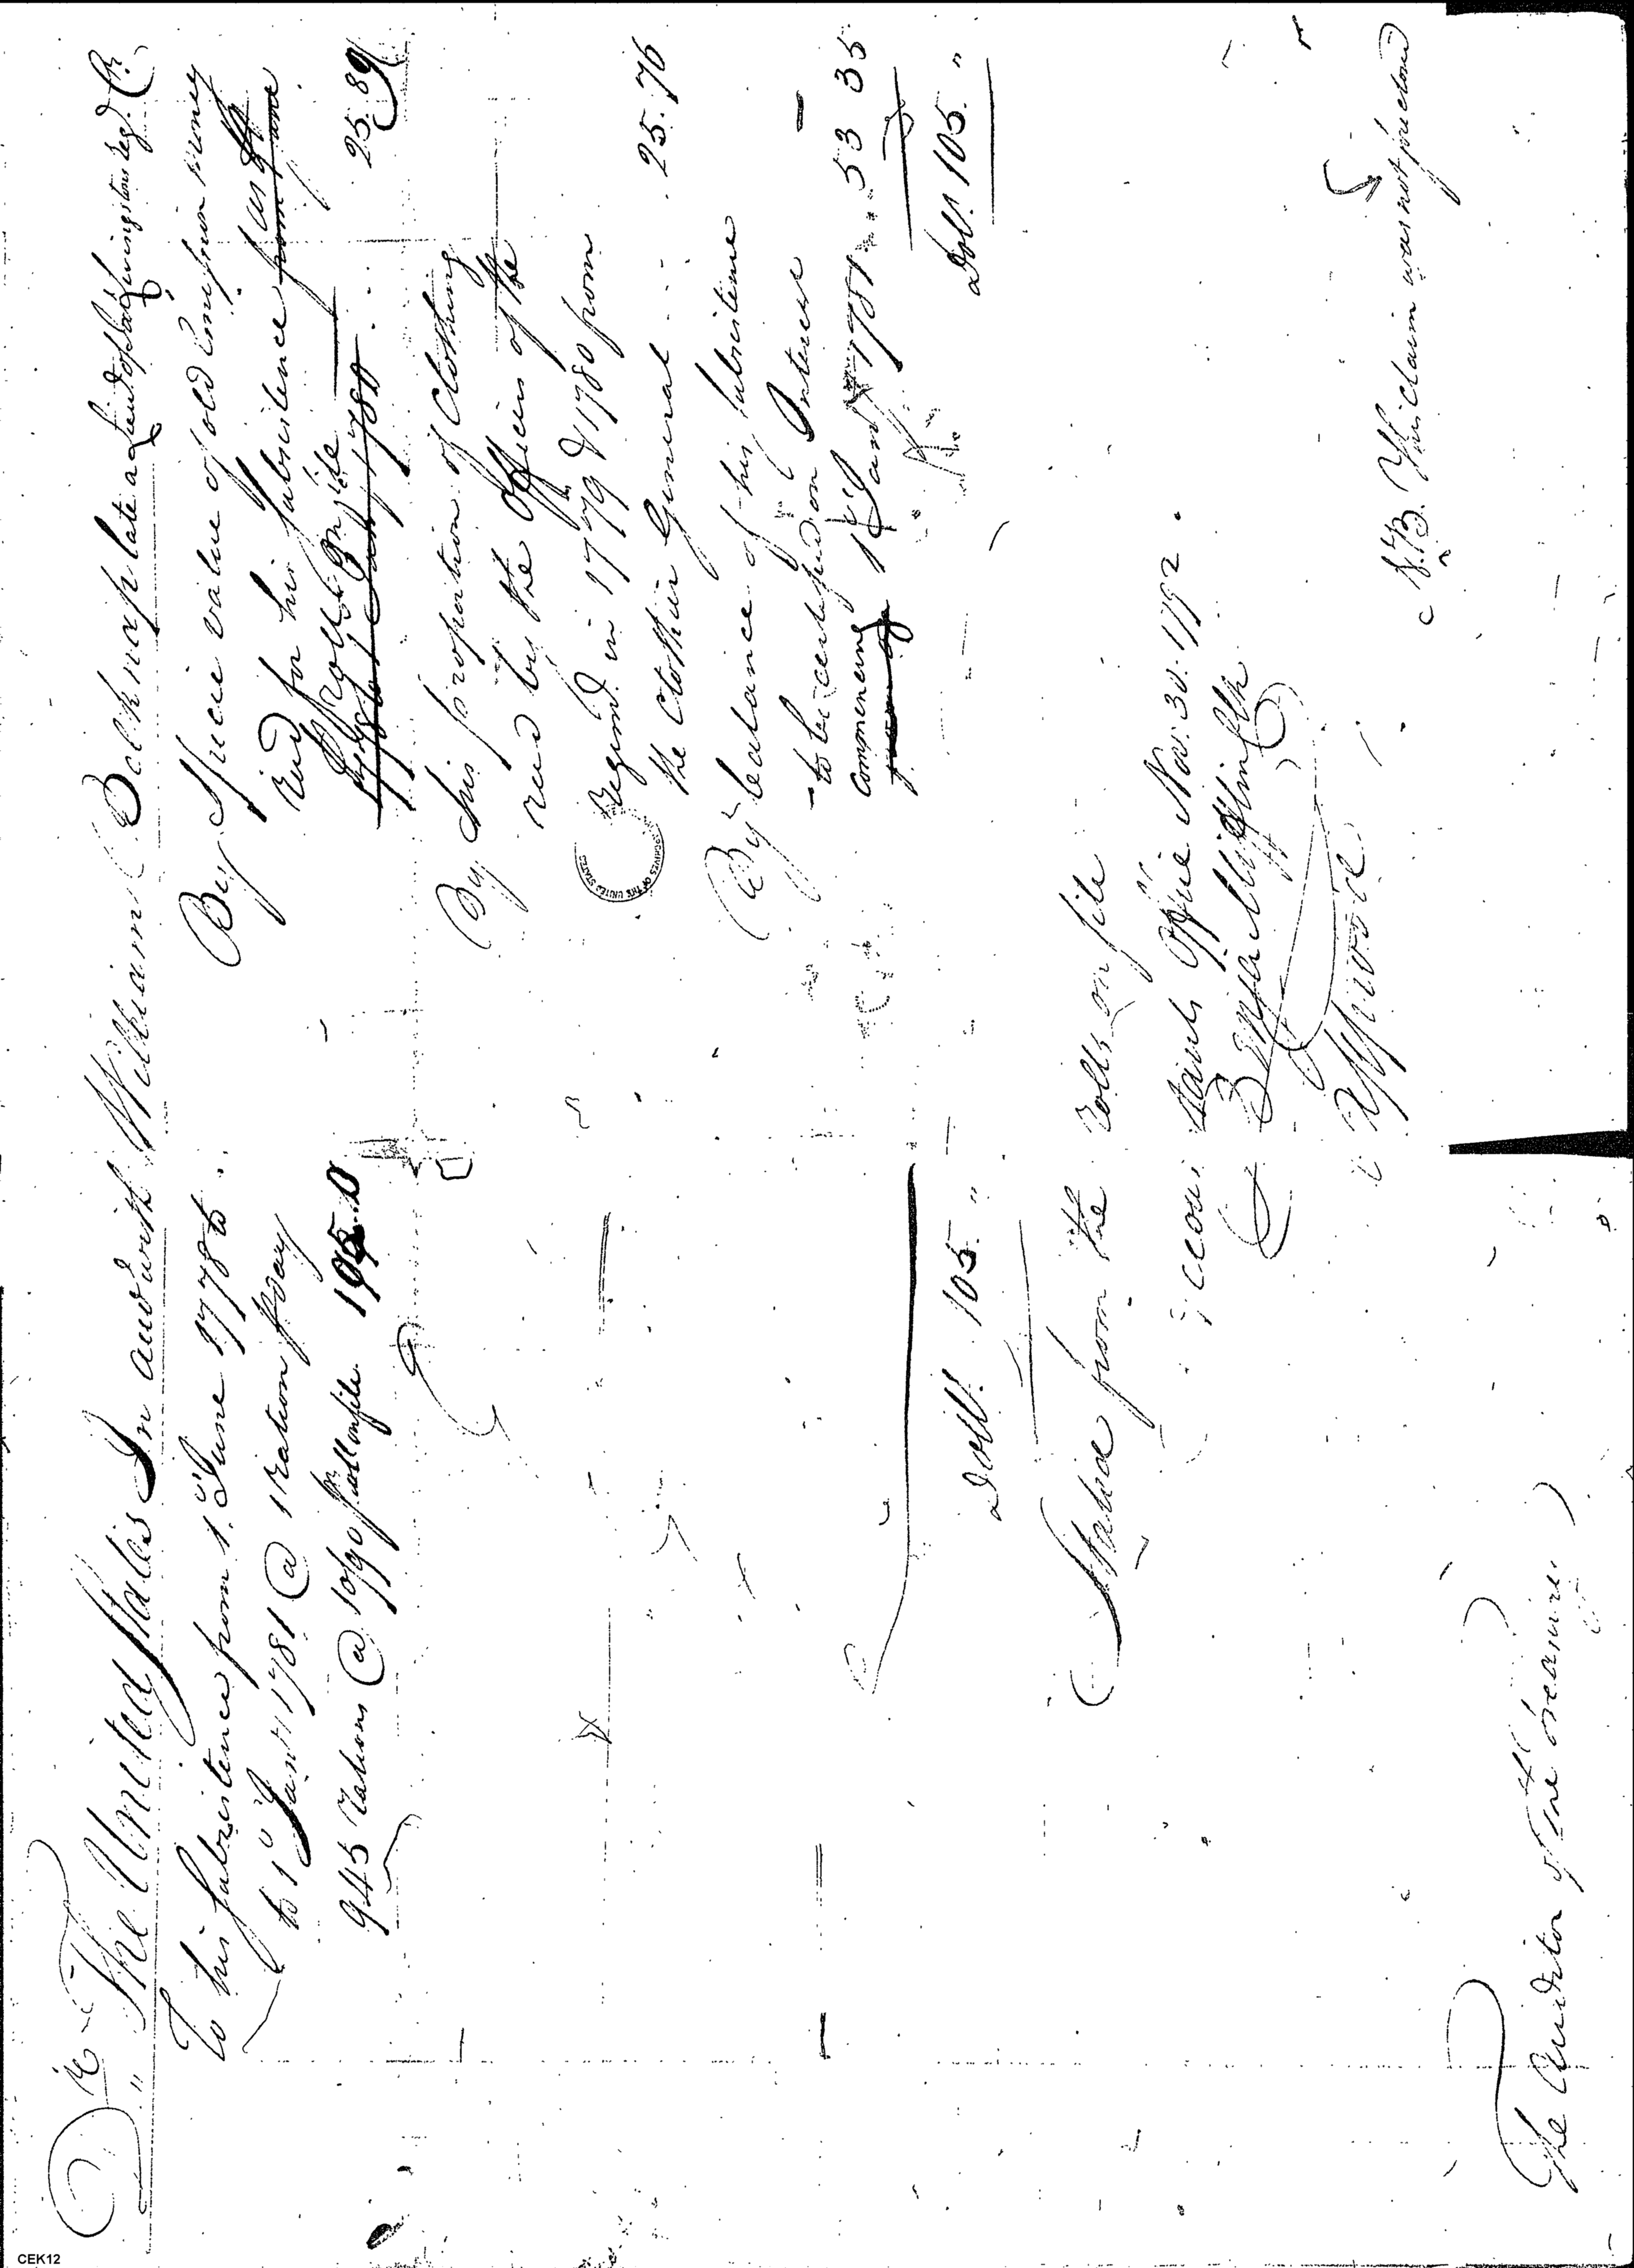 Dr. The United States In acco with William Belknap late a Lieut of Col Livingstons Regt. Cr.
To his subsistence from 1st June 1778 to
to 1st Jany 1781 @ 1 ration p day
945 Rations @ 10/90 p roll on file 105.0
Doll. 105. "
By Specie value of old Emission money
recd for his subsistence
p roll on file
25.89
By his proportion of Clothing
recd by the Officers of the
Regimt. in 1779 & 1780 from
the Clothier General 25.76
By balance of his subsistence
to be certified on Interest
commencing 1st Jany 1781 53 35
Doll. 105. "
Stated from the Rolls on file
Accountants Office Nov. 30. 1792.
Benjn Mifflin Clk
N.B. This claim was not precluded
The Auditor of the Treasury
ARCHIVES OF THE UNITED STATES
CEK12